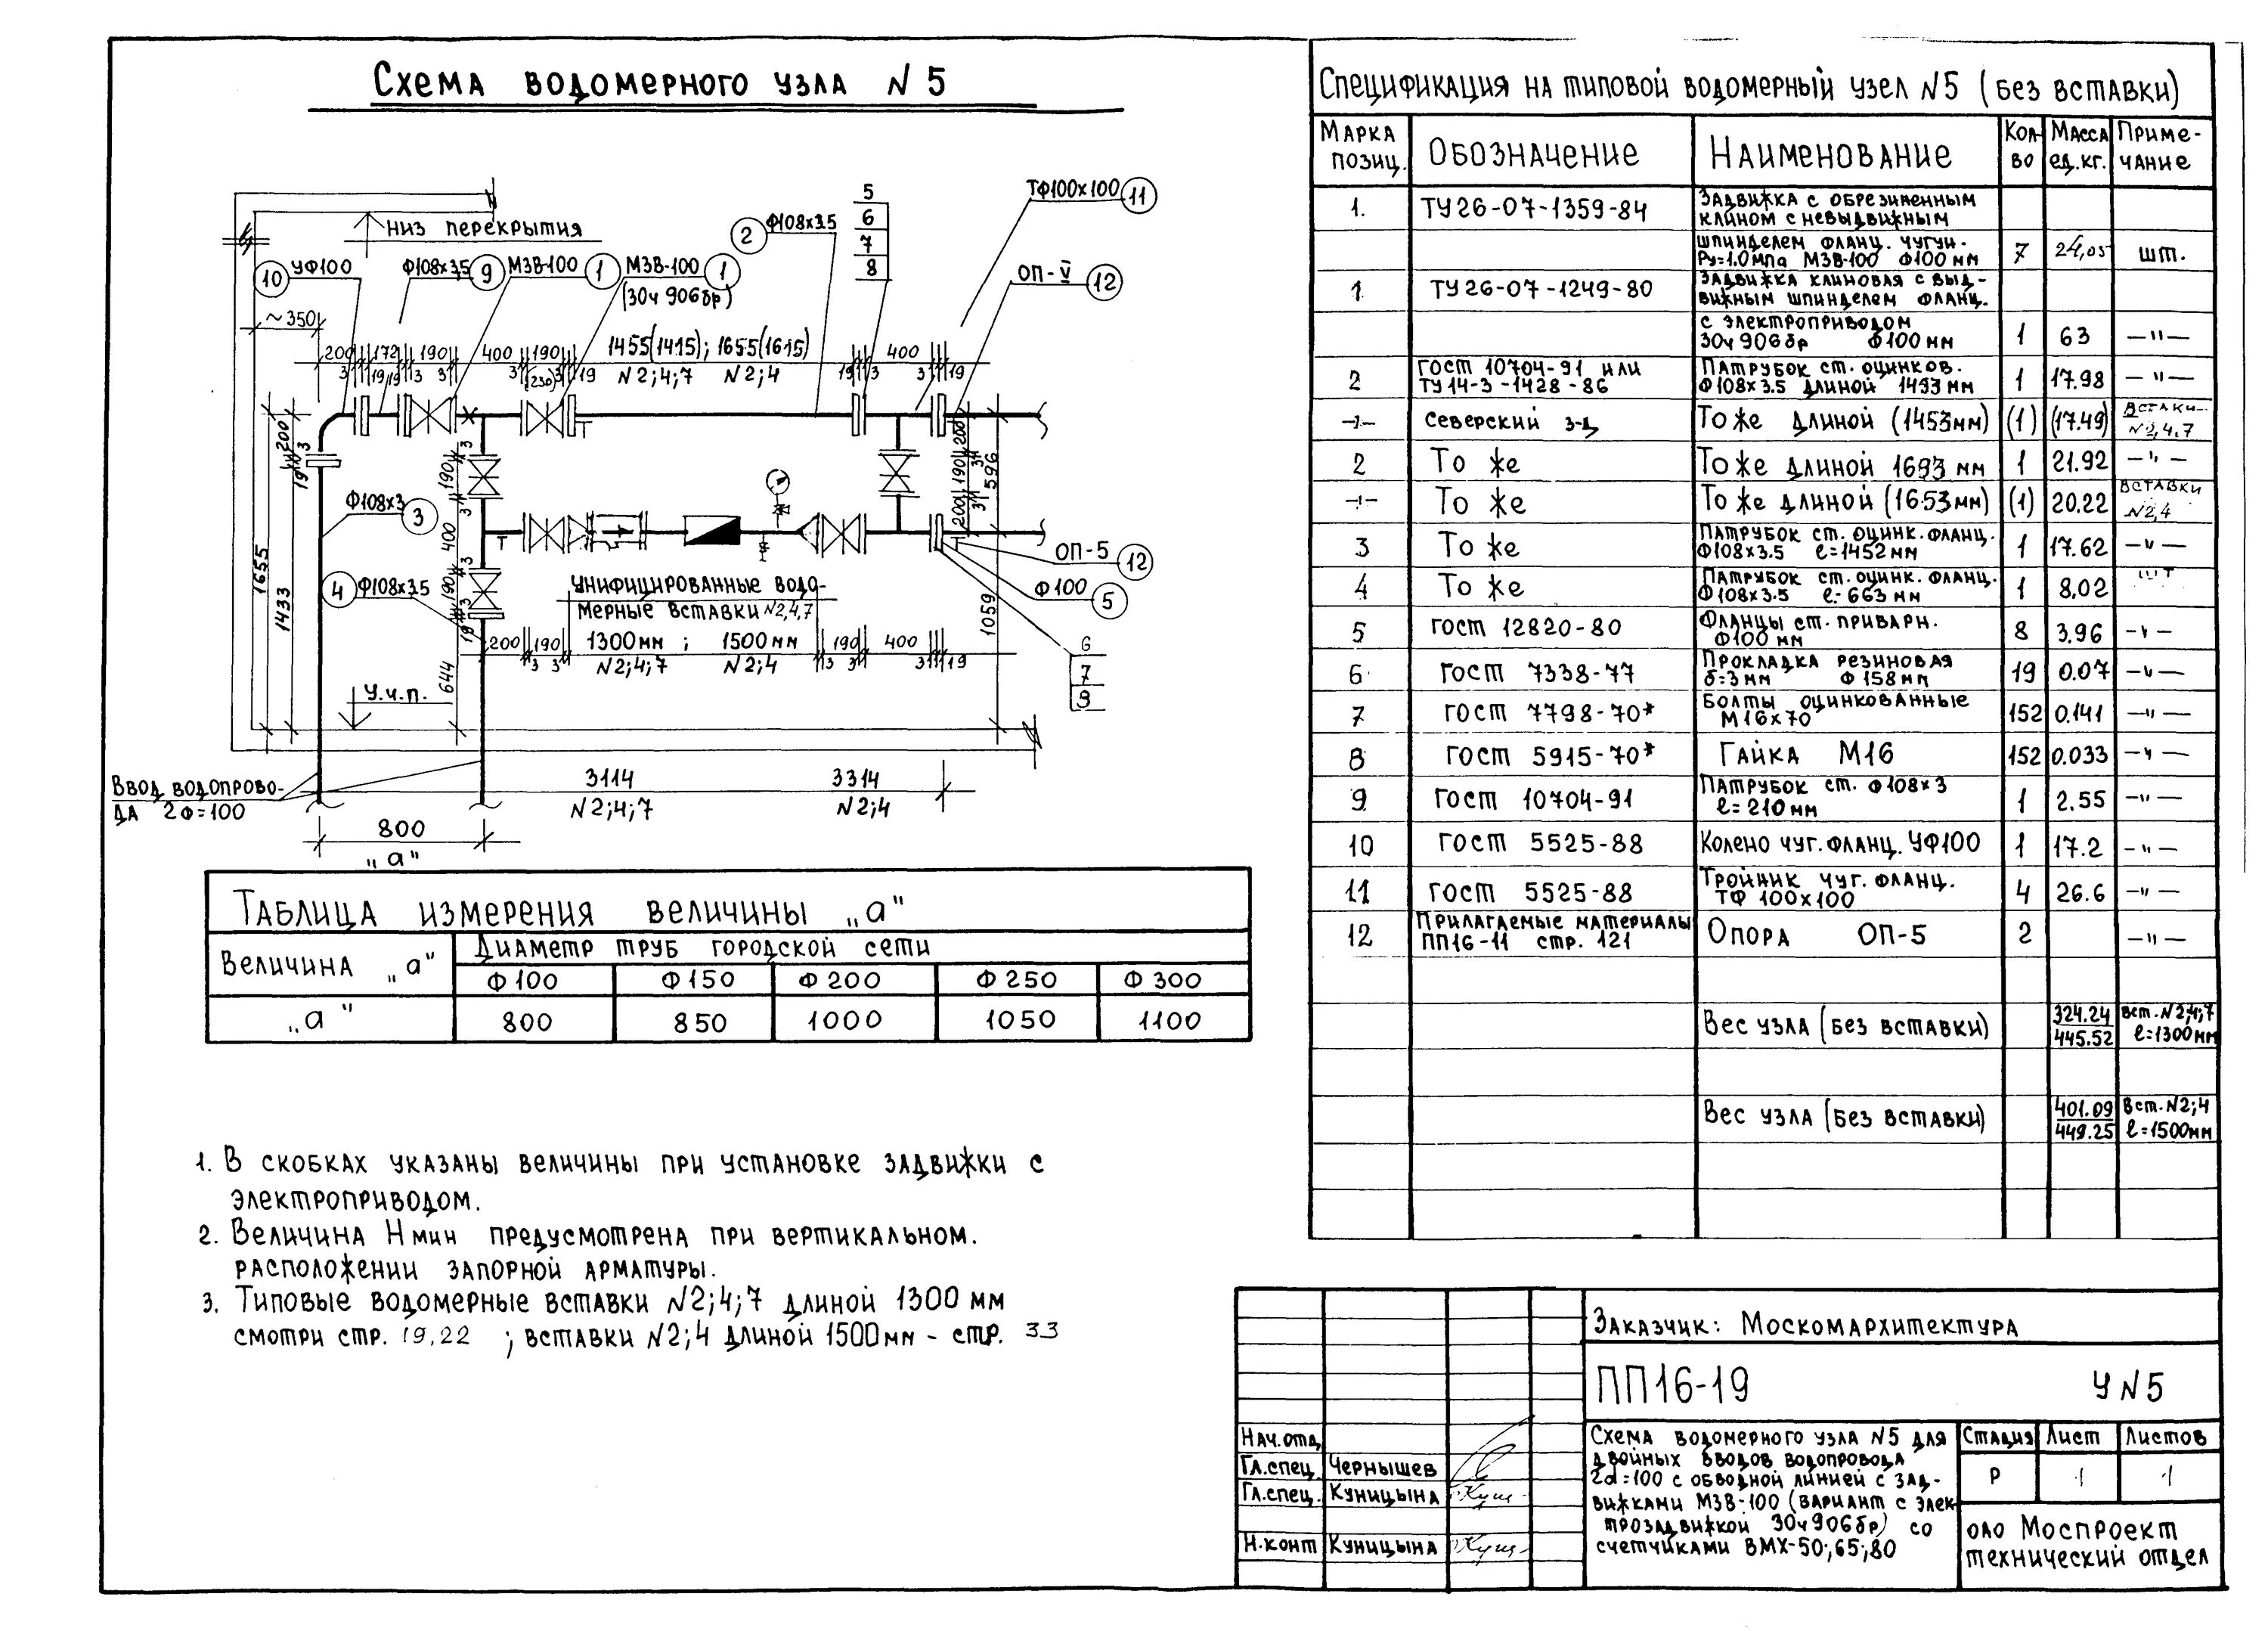 Схема водомерного узла N 5
Низ перекрытия
10 УФ100
Ф108х3.5 9
МЗВ-100 1
МЗВ-100 1
(30ч 906бр)
2 Ф108х3.5
5
6
7
8
ТФ100х100 11
ОП-V 12
~350
200 172 190 400 190 1455(1415); 1655(1615) 400
3 19 19 3 3 3 (230) 3 19 N2;4;7 N2;4 19 3 3 19
200
19 3
1655
1433
Ф108х3 3
4 Ф108х3.5
3
190
3
400
3
190
3
19
644
200
3
190
3
200
596
1059
ОП-5 12
Ф100 5
6
7
Унифицированные водо-
мерные вставки N2,4,7
200 190 1300мм ; 1500мм 190 400
3 3 N2;4;7 N2;4 3 3 3 19
У.ч.п.
Ввод водопрово-
да 2Ф=100
3114 3314
N2;4;7 N2;4
800
„а"
Таблица измерения величины „а"
Величина „а" Диаметр труб городской сети
Ф100 Ф150 Ф200 Ф250 Ф300
„а" 800 850 1000 1050 1100
1. В скобках указаны величины при установке задвижки с
электроприводом.
2. Величина Нмин предусмотрена при вертикальном.
расположении запорной арматуры.
3. Типовые водомерные вставки N2;4;7 длиной 1300 мм
смотри стр. 19,22 ; вставки N2;4 длиной 1500мм - стр. 33
Спецификация на типовой водомерный узел N5 (без вставки)
Марка позиц. Обозначение Наименование Кол-во Масса ед.кг. Примечание
1. ТУ26-07-1359-84 Задвижка с обрезиненным
клином с невыдвижным
шпинделем фланц. чугун.
Ру=1.0мпа МЗВ-100 Ф100 мм 7 24,05 шт.
1 ТУ26-07-1249-80 Задвижка клиновая с выд-
вижным шпинделем фланц.
с электроприводом
30ч 906бр Ф100 мм 1 63 —"—
2 ГОСТ 10704-91 или
ТУ14-3-1428-86 Патрубок ст. оцинков.
Ф108х3.5 длиной 1493 мм 1 17.98 —"—
—"— Северский з-д То же длиной (1453мм) (1) (17.49) Вставки N2,4,7
2 То же То же длиной 1693 мм 1 21.92 —"—
—"— То же То же длиной (1653мм) (1) 20.22 Вставки N2,4
3 То же Патрубок ст. оцинк. фланц.
Ф108х3.5 ℓ=1452 мм 1 17.62 —"—
4 То же Патрубок ст. оцинк. фланц.
Ф108х3.5 ℓ-663 мм 1 8.02 шт
5 ГОСТ 12820-80 Фланцы ст. приварн.
Ф100 мм 8 3.96 —"—
6 ГОСТ 7338-77 Прокладка резиновая
б=3 мм Ф 158 мм 19 0.07 —"—
7 ГОСТ 7798-70* Болты оцинкованные
М16х70 152 0.141 —"—
8 ГОСТ 5915-70* Гайка М16 152 0.033 —"—
9 ГОСТ 10704-91 Патрубок ст. Ф108х3
ℓ=210 мм 1 2.55 —"—
10 ГОСТ 5525-88 Колено чуг. фланц. УФ100 1 17.2 —"—
11 ГОСТ 5525-88 Тройник чуг. фланц.
ТФ 100х100 4 26.6 —"—
12 Прилагаемые материалы
ПП16-11 стр. 121 Опора ОП-5 2 —"—
Вес узла (без вставки) 324.24 вст. N2;4;7
445.52 ℓ=1300мм
Вес узла (без вставки) 401.09 Вст. N2;4
449.25 ℓ=1500мм
Заказчик: Москомархитектура
ПП16-19 У N5
Схема водомерного узла N5 для
двойных вводов водопровода
2d=100 с обводной линией с зад-
вижками МЗВ-100 (вариант с элек-
трозадвижкой 30ч906бр) со
счетчиками ВМХ-50;,65;,80
Стадия Лист Листов
Р 1 1
ОАО Моспроект
технический отдел
Нач.отд.
Гл.спец. Чернышев
Гл.спец. Куницына
Н.конт Куницына